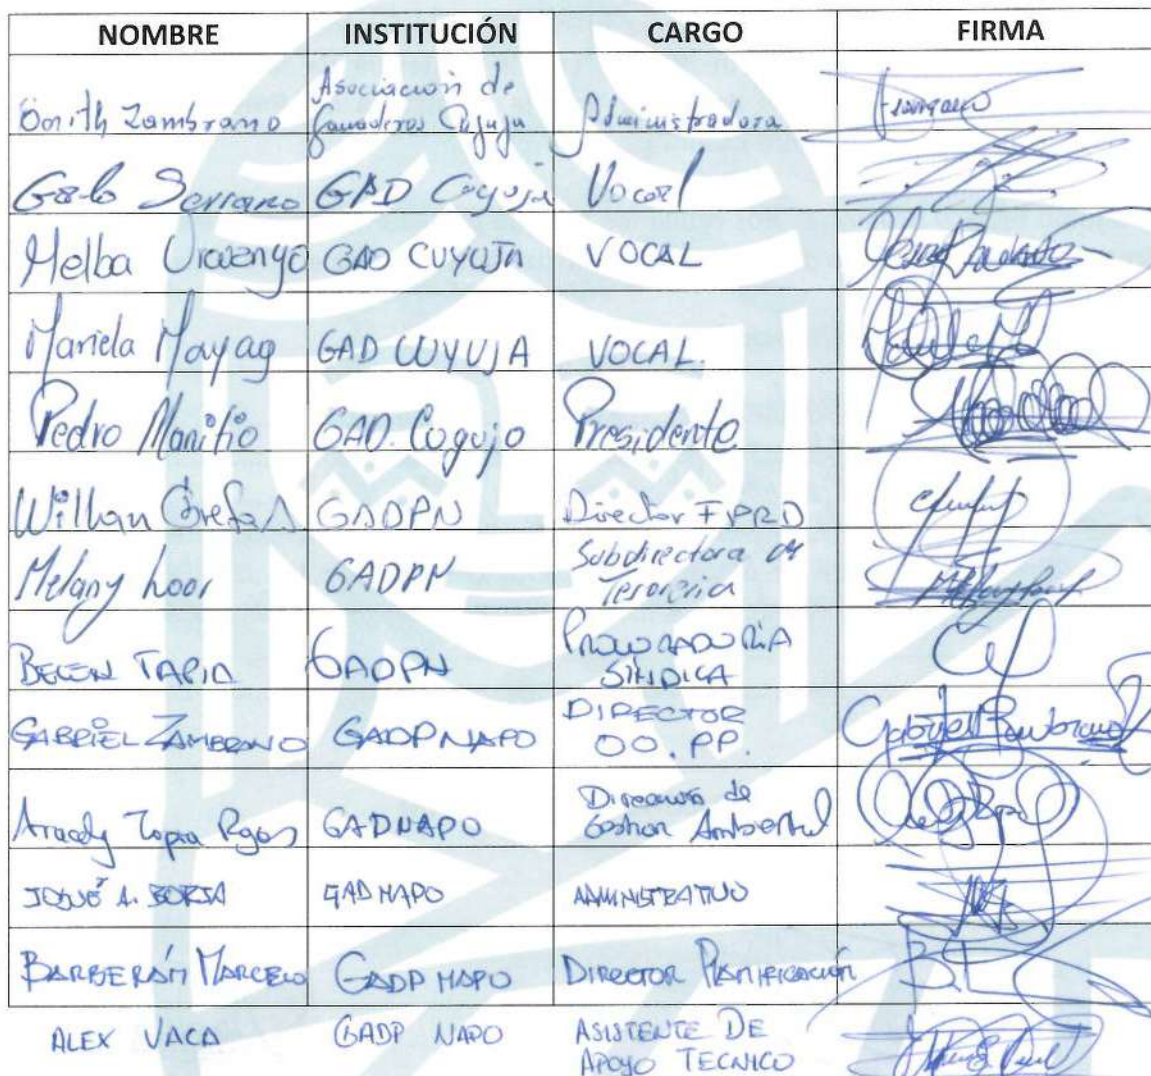 NOMBRE INSTITUCIÓN CARGO FIRMA
Zambrano Asociación de Ganaderos Cujuju Administradora
Galo Serrano GAD Cuyuja Vocal
Melba GAD CUYUJA VOCAL
Mariela Mayag GAD CUYUJA VOCAL.
Pedro Manitio GAD. Coyujo Presidente
Willian Grefa A GADPN Director
Melany Loor GADPN Subdirectora de Tesorería
BELEN TAPIA GADPN PROCURADURIA SINDICA
GABRIEL ZAMBRANO GADPNAPO DIRECTOR OO.PP. Gabriel Zambrano
Aracely Tapia Rojas GADNAPO Dirección de Gestion Ambiental
JOSUÉ A. BORJA GADNAPO ADMINISTRATIVO
BARBERÁN MARCELO GADP NAPO DIRECTOR PLANIFICACIÓN
ALEX VACA GADP NAPO ASISTENTE DE APOYO TECNICO